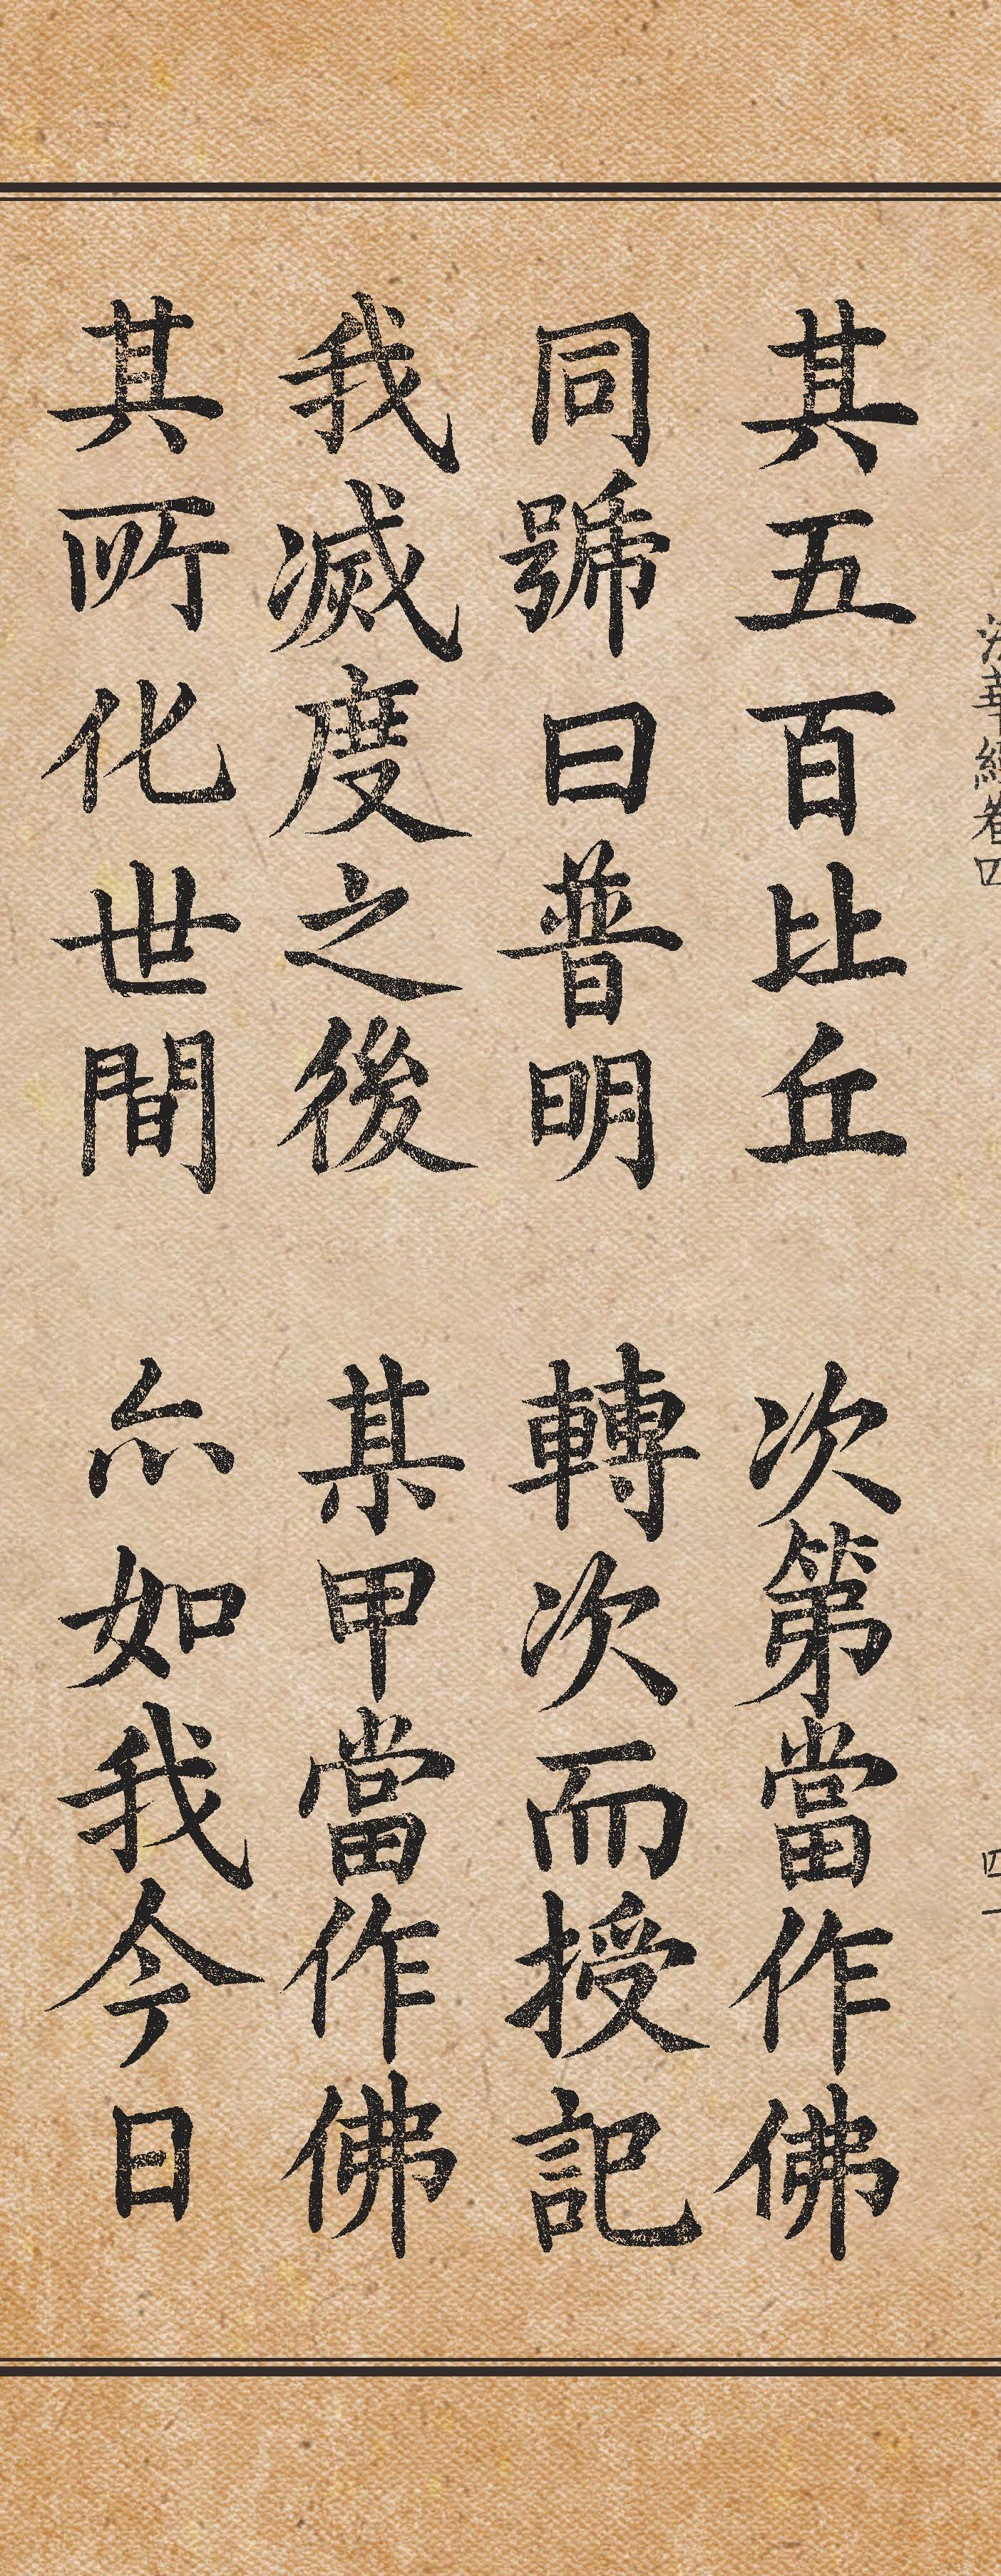 法華經卷四
四一
其五百比丘 次第當作佛
同號曰普明 轉次而授記
我滅度之後 某甲當作佛
其所化世間 亦如我今日